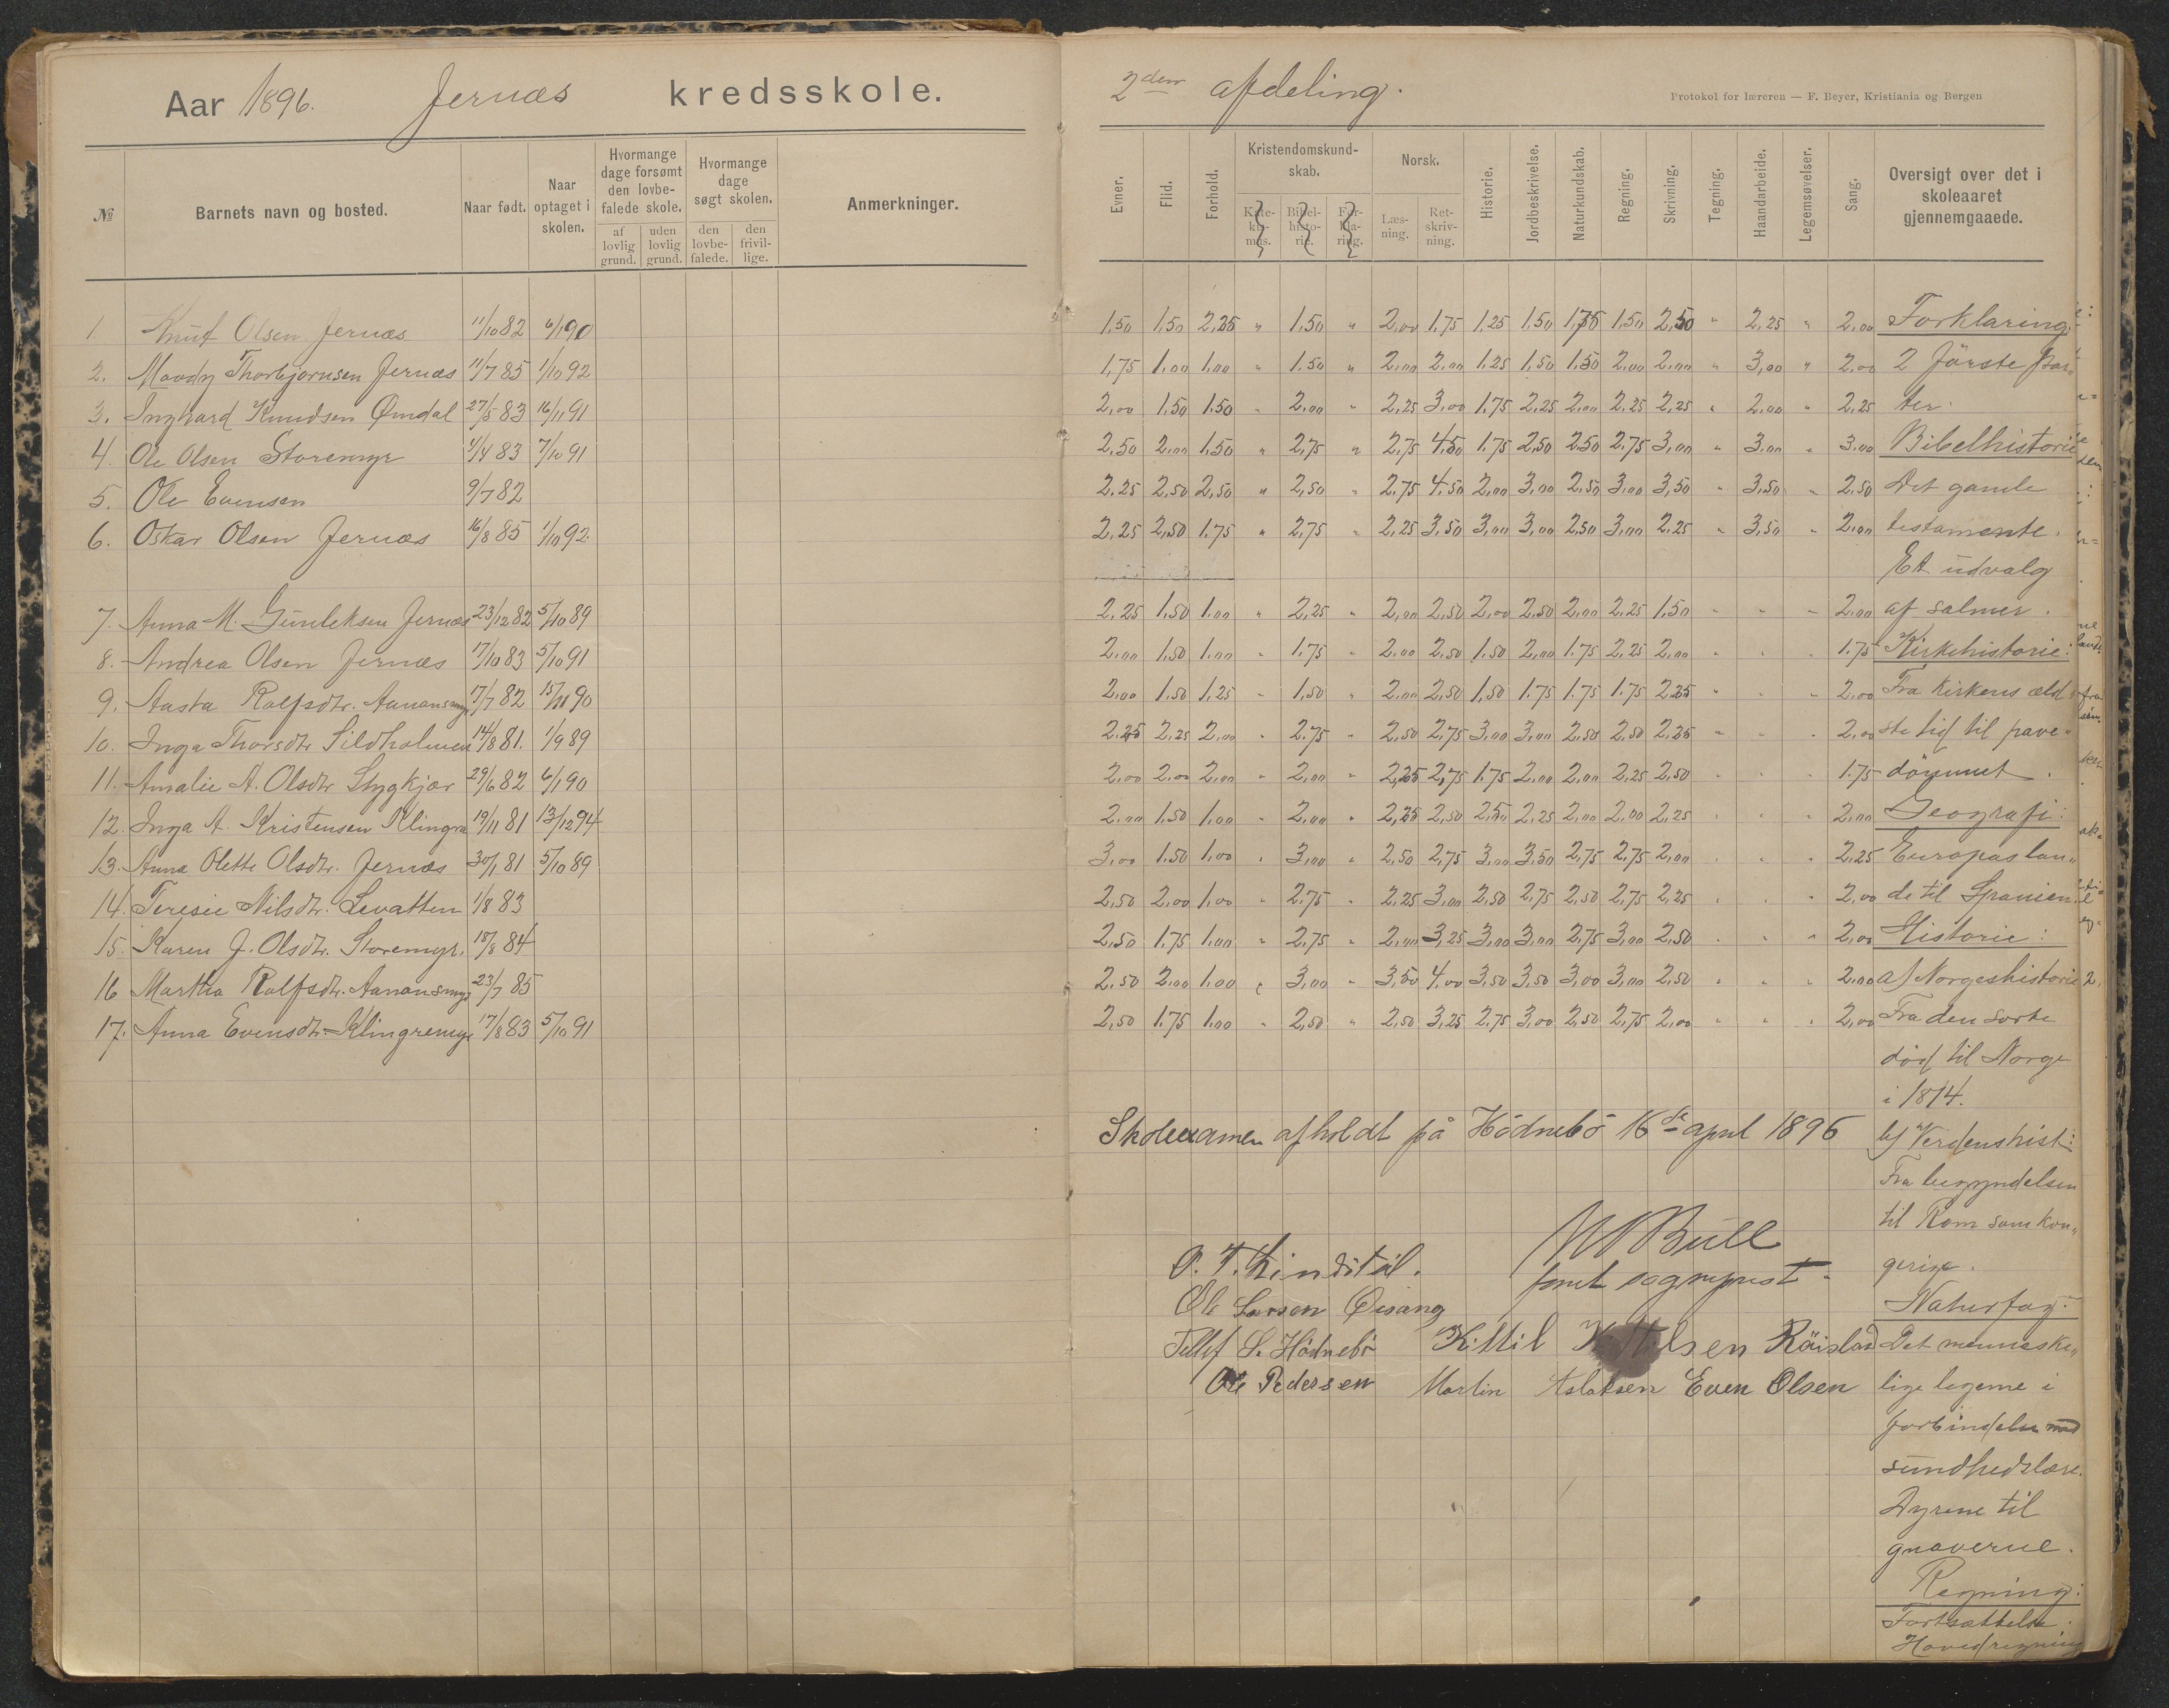 Aar 1896. Jernæs kredsskole.
№ Barnets navn og bosted. Naar født. Naar optaget i skolen. Hvormange dage forsømt den lovbefalede skole. af lovlig grund. uden lovlig grund. Hvormange dage søgt skolen. den lovbefalede. den frivillige. Anmerkninger.
1. Knut Olsen Jernæs 11/10 82 6/1 90
2. Moody Thorbjørnsen Jernæs 11/7 85 1/10 92
3. Inghard Knudsen Omdal 27/5 83 16/11 91
4. Ole Olsen Storemyr 4/4 83 7/10 91
5. Ole Evensen 9/7 82
6. Oskar Olsen Jernæs 16/8 85 1/10 92.
7. Anna M. Gunleksen Jernæs 23/12 82 5/10 89
8. Andrea Olsen Jernæs 17/10 83 5/10 91
9. Aasta Rolfsdtr. Aanonsmyr 17/7 82 15/11 90
10. Inga Thorsdtr Sildholmen 14/8 81. 1/9 89
11. Amalie A. Olsdtr Stygkjær 29/6 82 6/1 90
12. Inga A. Kristensen Klingre 19/11 81 13/12 94
13. Anna Olette Olsdtr. Jernæs 30/1 81 5/10 89
14. Teresie Nilsdtr. Levatten 1/8 83
15. Karen J. Olsdtr. Storemyr. 18/8 84
16 Martha Rolfsdtr. Aanonsmyr 23/7 85
17. Anna Evensdtr. Klingremyr 17/8 83 5/10 91
2den afdeling.
Protokol for læreren — F. Beyer, Kristiania og Bergen
Evner. Flid. Forhold. Kristendomskundskab. Katekismus. Bibelhistorie. Forklaring. Norsk. Læsning. Retskrivning. Historie. Jordbeskrivelse. Naturkundskab. Regning. Skrivning. Tegning. Haandarbeide. Legemsøvelser. Sang. Oversigt over det i skoleaaret gjennemgaaede.
1,50 1,50 2,25 " 1,50 " 2,00 1,75 1,25 1,50 1,75 1,50 2,50 " 2,25 " 2,00 Forklaring:
1,75 1,00 1,00 " 1.50 " 2,00 2,00 1.25 1,50 1.50 2,00 2,00 " 3,00 " 2,00 2 første par„
2,00 1.50 1.50 " 2,00 " 2,25 3,00 1.75 2,25 2,00 2,25 2,25 " 2,00 " 2,25 ter.
2,50 2,00 1,50 " 2,75 " 2,75 4,50 1.75 2,50 2,50 2,75 3,00 " 3,00 " 3,00 Bibelhistorie
2,25 2,50 2,50 " 2,50 " 2,75 4,50 2,00 3,00 2,50 3,00 3,50 " 3,50 " 2,50 Det gamle
2,25 2,50 1.75 " 2,75 " 2,25 3,50 3,00 3,00 2,50 3,00 2,25 " 3,50 " 2,00 testamente.
Et udvalg
2,25 1,50 1,00 " 2,25 " 2,00 2,50 2,00 2,50 2,00 2,25 1,50 " " " 2,00 af salmer.
2,00 1,50 1,00 " 1.75 " 2,00 2,50 1,50 2,00 1.75 2,25 2,00 " " " 1.75 Kirkehistorie:
2,00 1,50 1,25 " 1,50 " 2,00 2,50 1,50 1.75 1.75 1.75 2,25 " " " 2,00 Fra kirkens æld
2,25 2,25 2,00 " 2,75 " 2,50 2,75 3,00 3,00 2,50 2,50 2,25 " " " 2,00 ste tid til pave„
2,00 2,00 2,00 " 2,00 " 2,25 2,75 1.75 2,00 2,00 2,25 2,50 " " " 1.75 dömmet.
2,00 1.50 1,00 " 2,00 " 2,25 2,50 2,50 2,25 2,00 2,00 2,25 " " " 2,00 Geografi:
3,00 1.50 1,00 " 3,00 " 2,50 2,75 3,00 3,50 2,75 2,75 2,00 " " " 2,25 Europas lan„
2,50 2,00 1,00 " 2,75 " 2,25 3,00 2,50 2,75 2,50 2,75 2,25 " " " 2,00 de til Spanien.
2,50 1.75 1,00 " 2,75 " 2,00 3,25 3,00 3,00 2,75 3,00 2,50 " " " 2,00 Historie:
2,50 2,00 1.00 " 3,00 " 3,50 4,00 3,50 3,50 3,00 3,00 2,50 " " " 2,00 a) Norgeshistorie
2,50 1.75 1,00 " 2,50 " 2,50 3,25 2,75 3,00 2,50 2,75 2,00 " " " 2,00 Fra den sorte
död til Norge
i 1814.
Skoleexamen afholdt på Hödnebö 16de april 1896
b) Verdenshist:
Fra begyndelsen
til Rom som kon„
gerige.
Bull
const sogneprest.
O. T. Lindstöl.
Ole Larsen Öisang
Tellef L. Hödnebö Kittil Kittilsen Räislad
Ole Pedersen Martin Aslaksen Even Olsen
Naturfag:
Det menneske„
lige legeme i
forbindelse med
sundhedslære.
Dyrene til
gnaverne.
Regning:
Fortsættelse.
Hovedregning